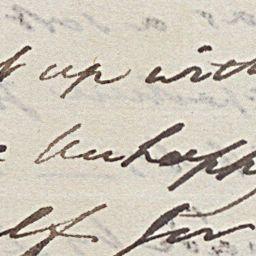 up with
unhapp
lf for